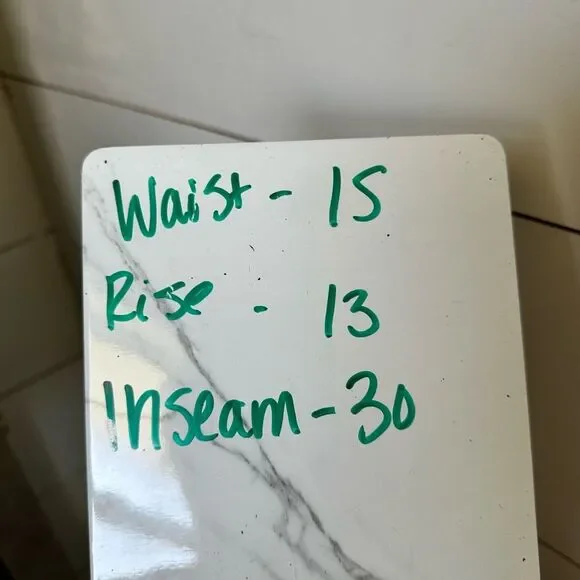 Waist - 15
Rise - 13
Inseam - 30